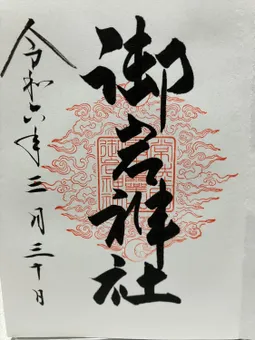 御岩神社
令和六年三月三十日